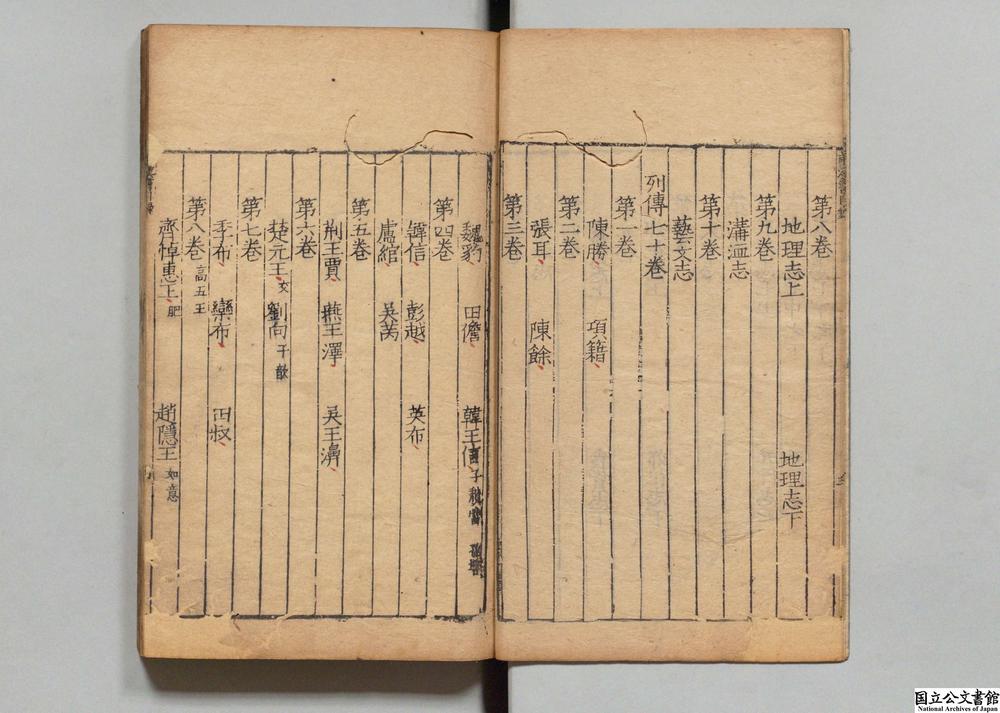 第八卷
地理志上 地理志下
第九卷
溝洫志
第十卷
藝文志
列傳七十卷
第一卷
陳勝 項籍
第二卷
張耳 陳餘
第三卷
魏豹 田儋 韓王信 子
第四卷
韓信 彭越 英布
盧綰 吳芮
第五卷
荊王賈 燕王澤 吳王濞
第六卷
楚元王 交 劉向 子歆
第七卷
季布 欒布 田叔
第八卷 高五王
齊悼惠王 肥 趙隱王 如意
国立公文書館
National Archives of Japan